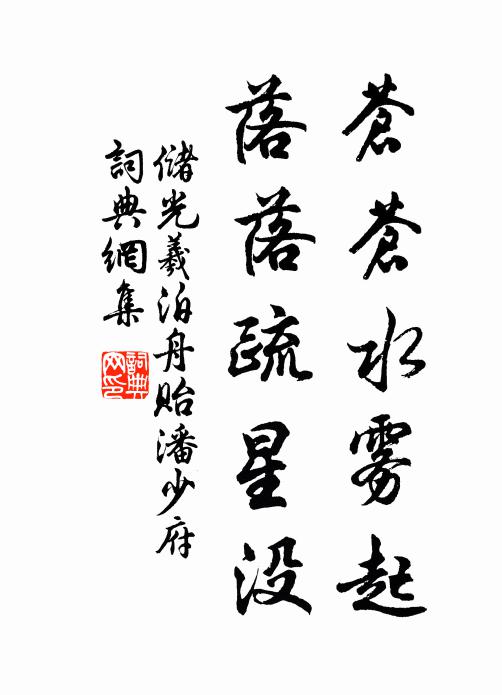 蒼蒼水雾起
落落疏星没
儲光羲泊舟貽潘少府
詞典網集
詞典
网印